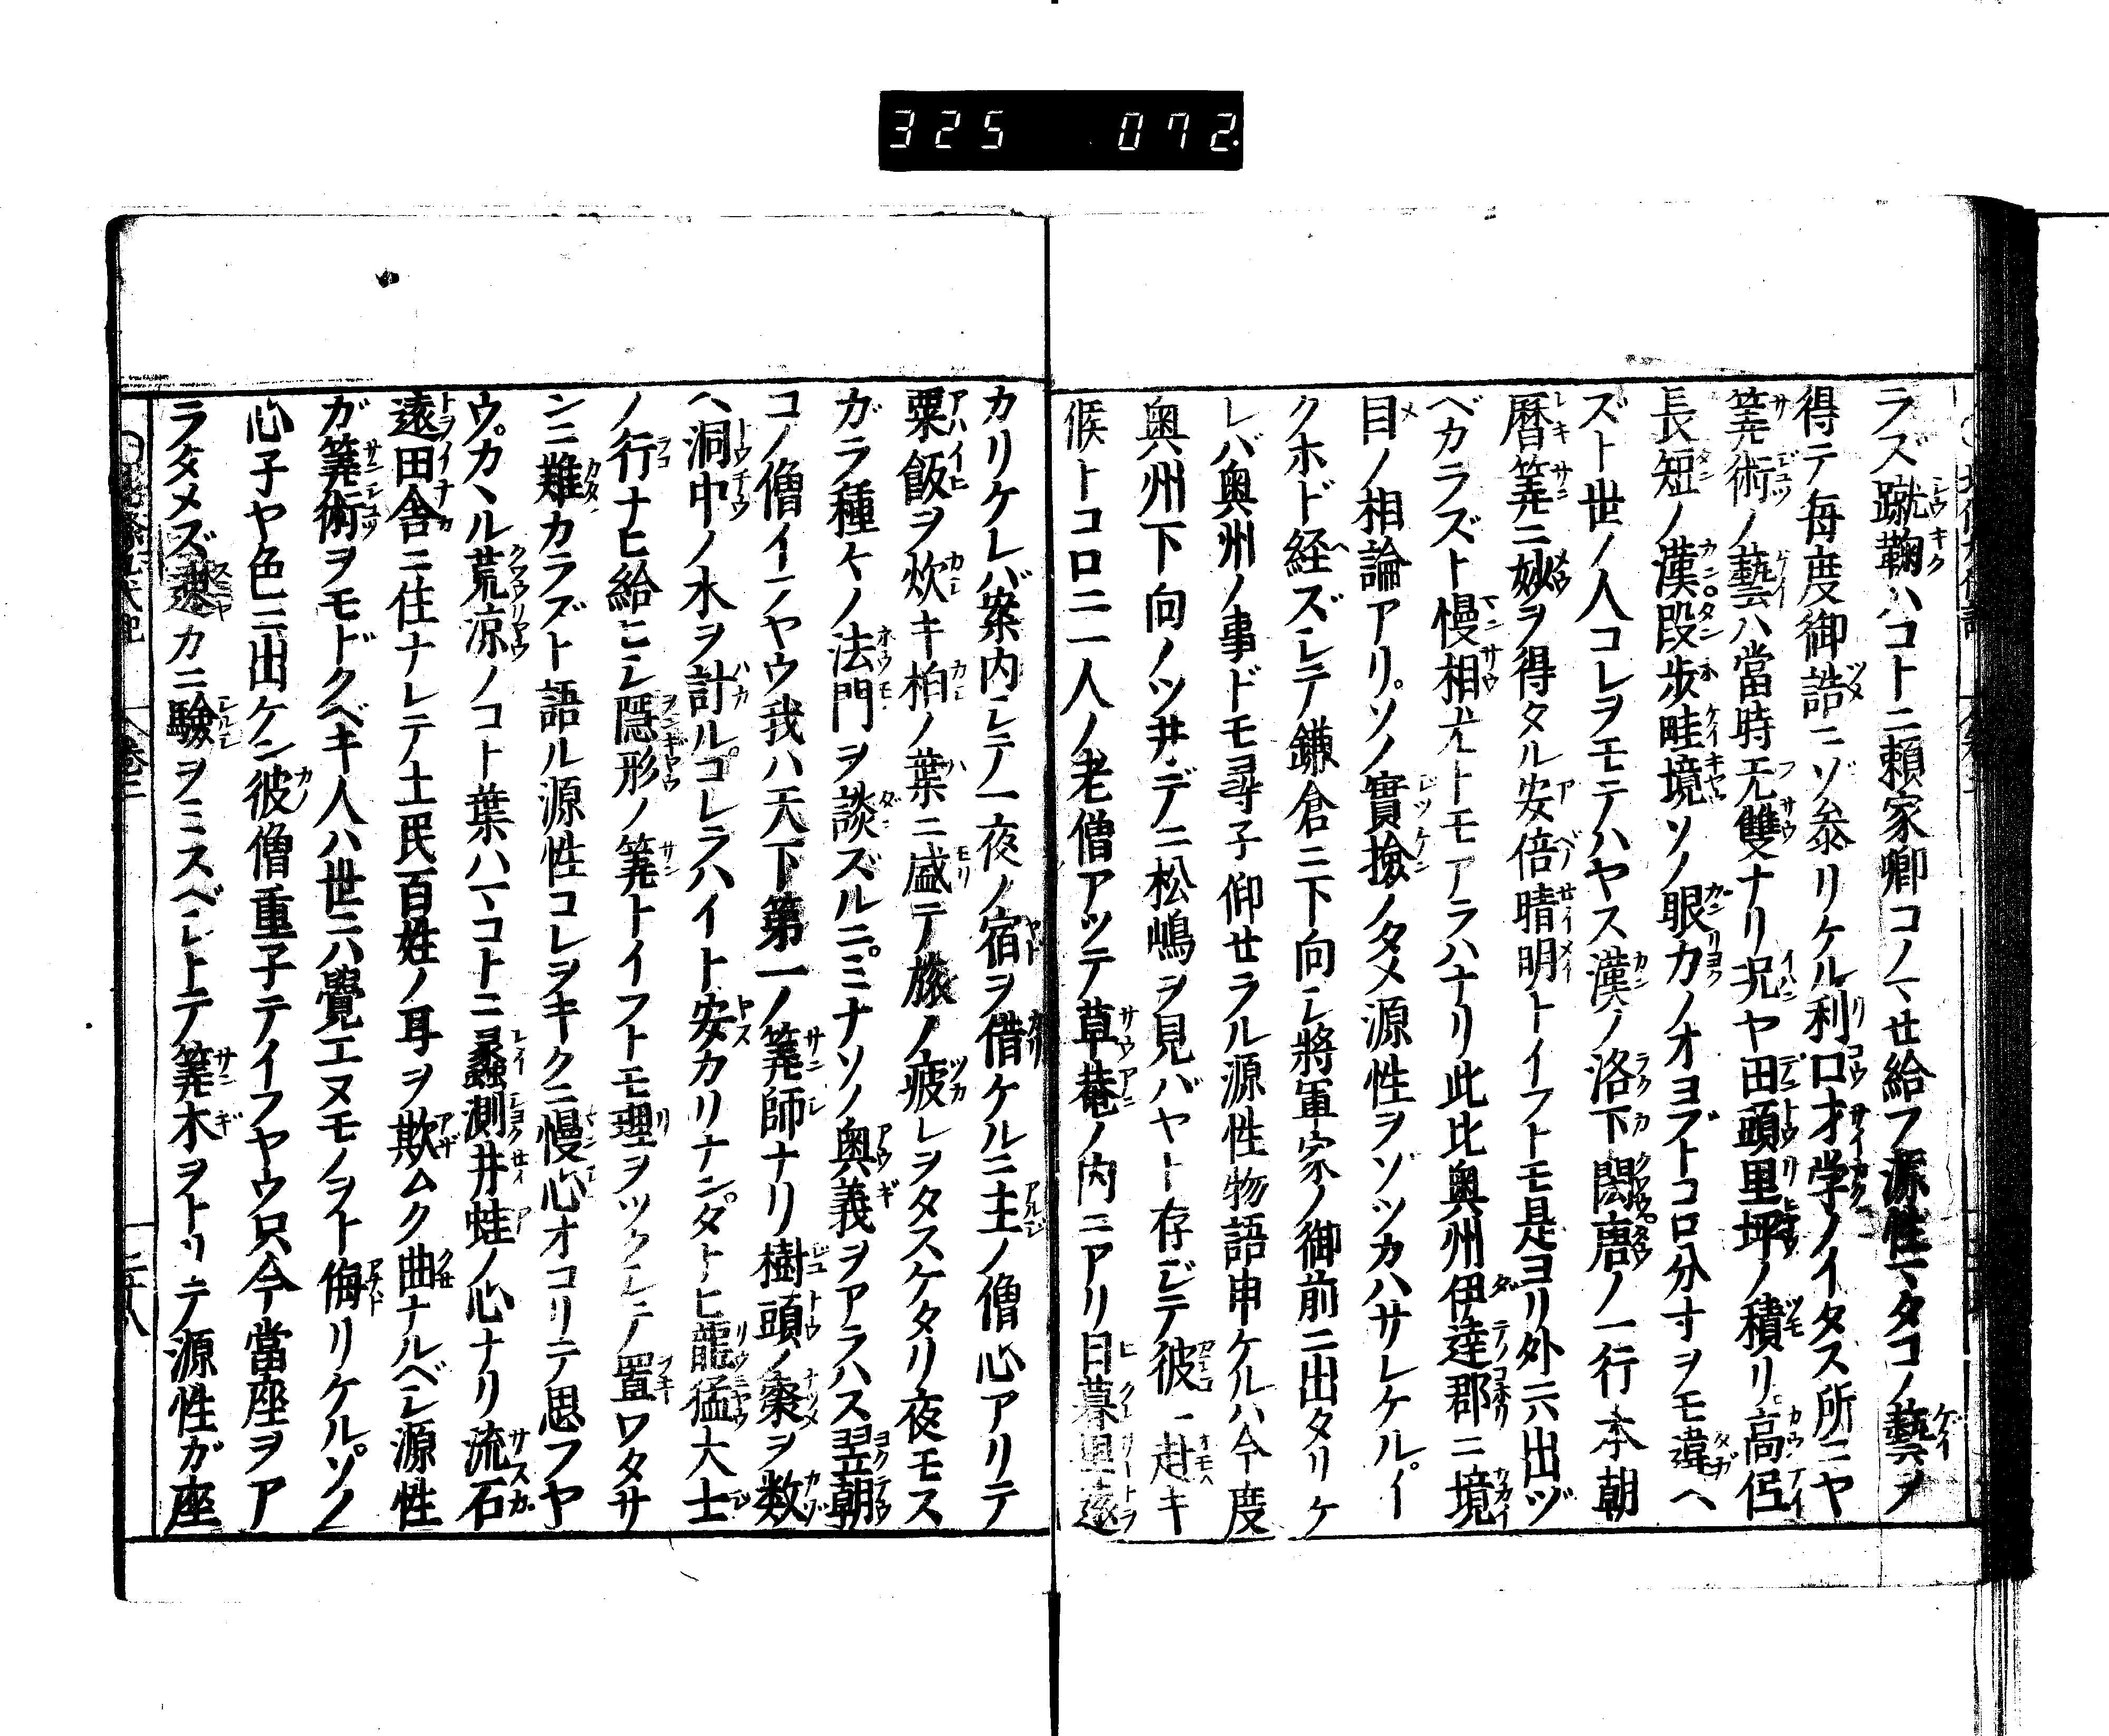 325 072.
ラズ蹴鞠ハコトニ頼家卿コノマセ給フ源性マタコノ藝ヲ
得テ毎度御詰ニゾ参リケル利口才学ノイタス所ニヤ
筭術ノ藝ハ當時无雙ナリ况ヤ田頭里坪ノ積リ高伹
長短ノ漢段歩畦境ソノ眼力ノオヨブトコロ分寸ヲモ違ヘ
ズト世ノ人コレヲモテハヤス漢ノ洛下閎唐ノ一行本朝
暦筭ニ妙ヲ得タル安倍晴明トイフトモ是ヨリ外ニハ出ヅ
ベカラズト慢相尤トモアラハナリ此比奥州伊達郡ニ境
目ノ相論アリソノ實撿ノタメ源性ヲゾツカハサレケルイ
クホド経ズシテ鎌倉ニ下向シ將軍家ノ御前ニ出タリケ
レバ奥州ノ事ドモ尋子仰セラル源性物語申ケルハ今度
奥州下向ノツ井デニ松嶋ヲ見バヤト存ジテ彼ニ赴キ
候トコロニ一人ノ老僧アツテ草菴ノ内ニアリ日暮里遠
カリケレバ案内シテ一夜ノ宿ヲ借ケルニ主ノ僧心アリテ
粟飯ヲ炊キ柏ノ葉ニ盛テ旅ノ疲レヲタスケタリ夜モス
ガラ種々ノ法門ヲ談ズルニミナソノ奥義ヲアラハス翌朝
コノ僧イフヤウ我ハ天下第一ノ筭師ナリ樹頭ノ棗ヲ数
ヘ洞中ノ水ヲ計ルコレラハイト安カリナンタトヒ龍猛大士
ノ行ナヒ給ヒシ隠形ノ筭トイフトモ理ヲツクシテ置ワタサ
ンニ難カラズト語ル源性コレヲキクニ慢心オコリテ思フヤ
ウカヽル荒凉ノコト葉ハマコトニ蠡測井蛙ノ心ナリ流石
遠田舎ニ住ナレテ土民百姓ノ耳ヲ欺ムク曲ナルベシ源性
ガ筭術ヲモドクベキ人ハ世ニハ覺エヌモノヲト侮リケルソノ
心子ヤ色ニ出ケン彼僧重子テイフヤウ只今當座ヲア
ラタメズ速カニ驗ヲミスベシトテ筭木ヲトリテ源性ガ座